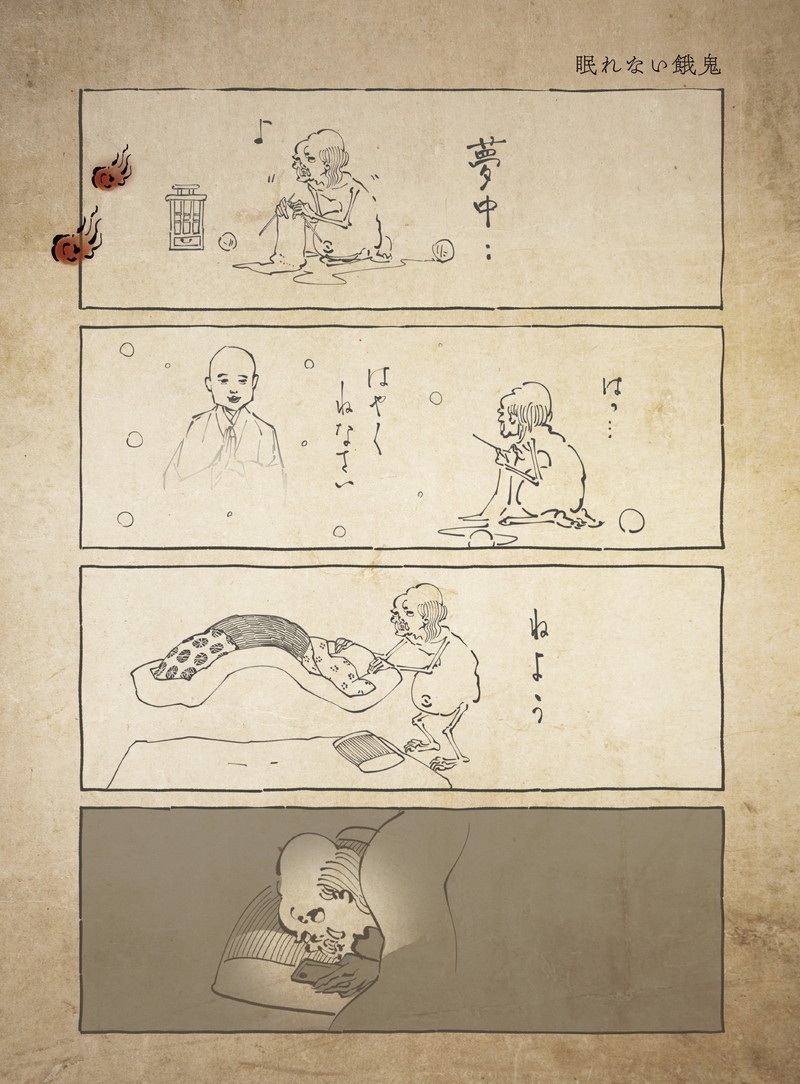 眠れない餓鬼
夢中：
はっ…
はやく
ねなさい
ねよう